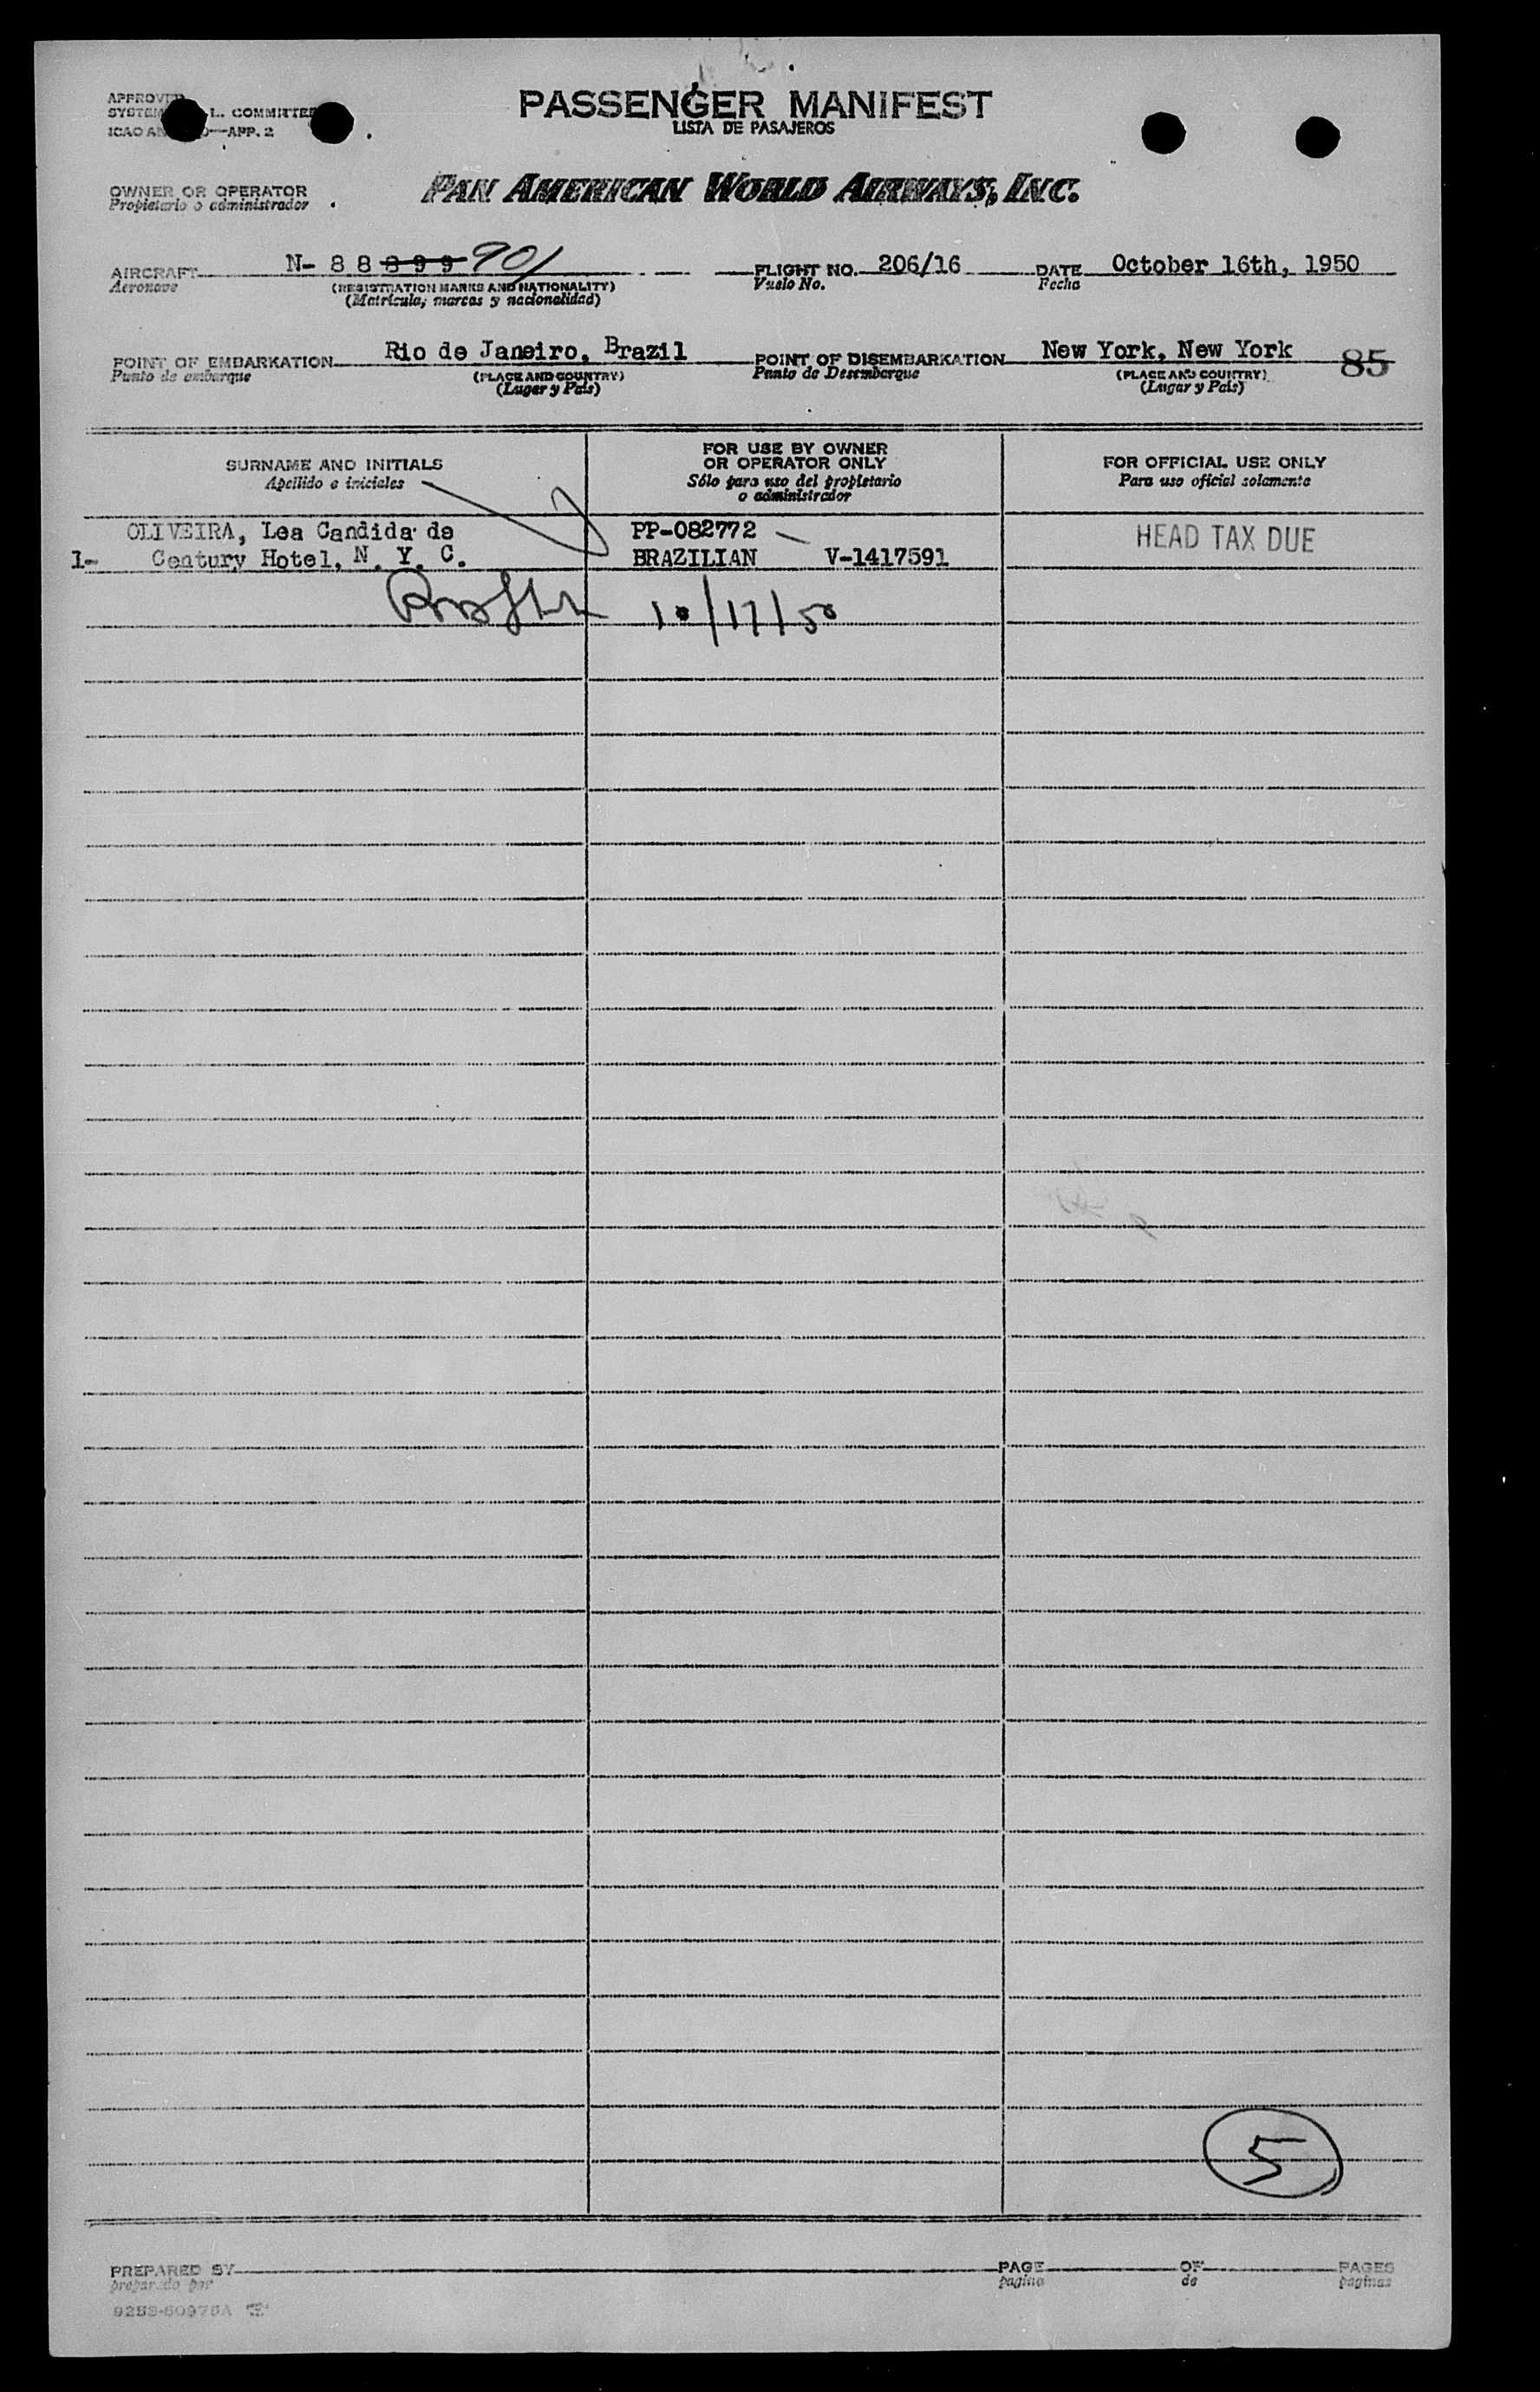 PASSENGER MANIFEST
LISTA DE PASAJEROS
APPROVED
L. COMMITTEE
APP. 2
OWNER OR OPERATOR
Propietario o administrador
PAN AMERICAN WORLD AIRWAYS, INC.
AIRCRAFT N- 88899 901 FLIGHT NO. 206/16 DATE October 16th, 1950
Aeronave (REGISTRATION MARKS AND NATIONALITY) Vuelo No. Fecha
(Matrícula, marcas y nacionalidad)
POINT OF EMBARKATION Rio de Janeiro, Brazil POINT OF DISEMBARKATION New York, New York 85
Punto de embarque (PLACE AND COUNTRY) Punto de Desembarque (PLACE AND COUNTRY)
(Lugar y País) (Lugar y País)
SURNAME AND INITIALS
Apellido e iniciales
FOR USE BY OWNER
OR OPERATOR ONLY
Sólo para uso del propietario
o administrador
FOR OFFICIAL USE ONLY
Para uso oficial solamente
OLIVEIRA, Lea Candida de PP-082772 HEAD TAX DUE
1- Century Hotel, N. Y. C. BRAZILIAN V-1417591
10/17/50
5
PREPARED BY PAGE OF PAGES
preparado por pagina de paginas